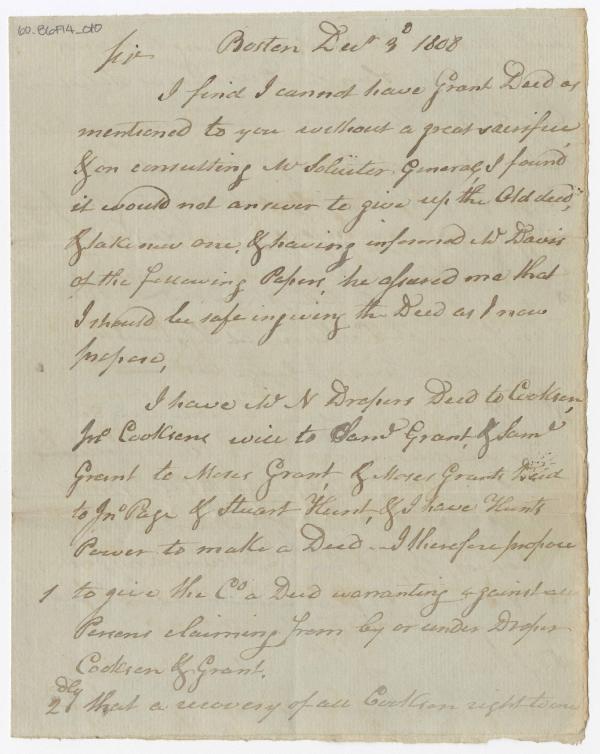 60-86914_010
Sir Boston Decr 3d 1808
I find I cannot have Grant Deed as
mentioned to you without a great sacrifice
& on consulting Mr Soliciter General, I found
it would not answer to give up the Old deed,
& take new one, & having informed Mr Davis
of the following Papers, he assured me that
I should be safe in giving the Deed as I now
propose,
I have Mr N Drapers Deed to Cookson,
Jno Cooksons will to Saml Grant, & Saml
Grant to Moses Grant, & Moses Grants Deed
to Jno Page & Stuart Hunt, & I have Hunts
Power to make a Deed - I therefore propose
1 to give the Co a Deed warranting against all
Persons claiming from by or under Draper
Cookson & Grant.
2dly that a recovery of all Cookson right to